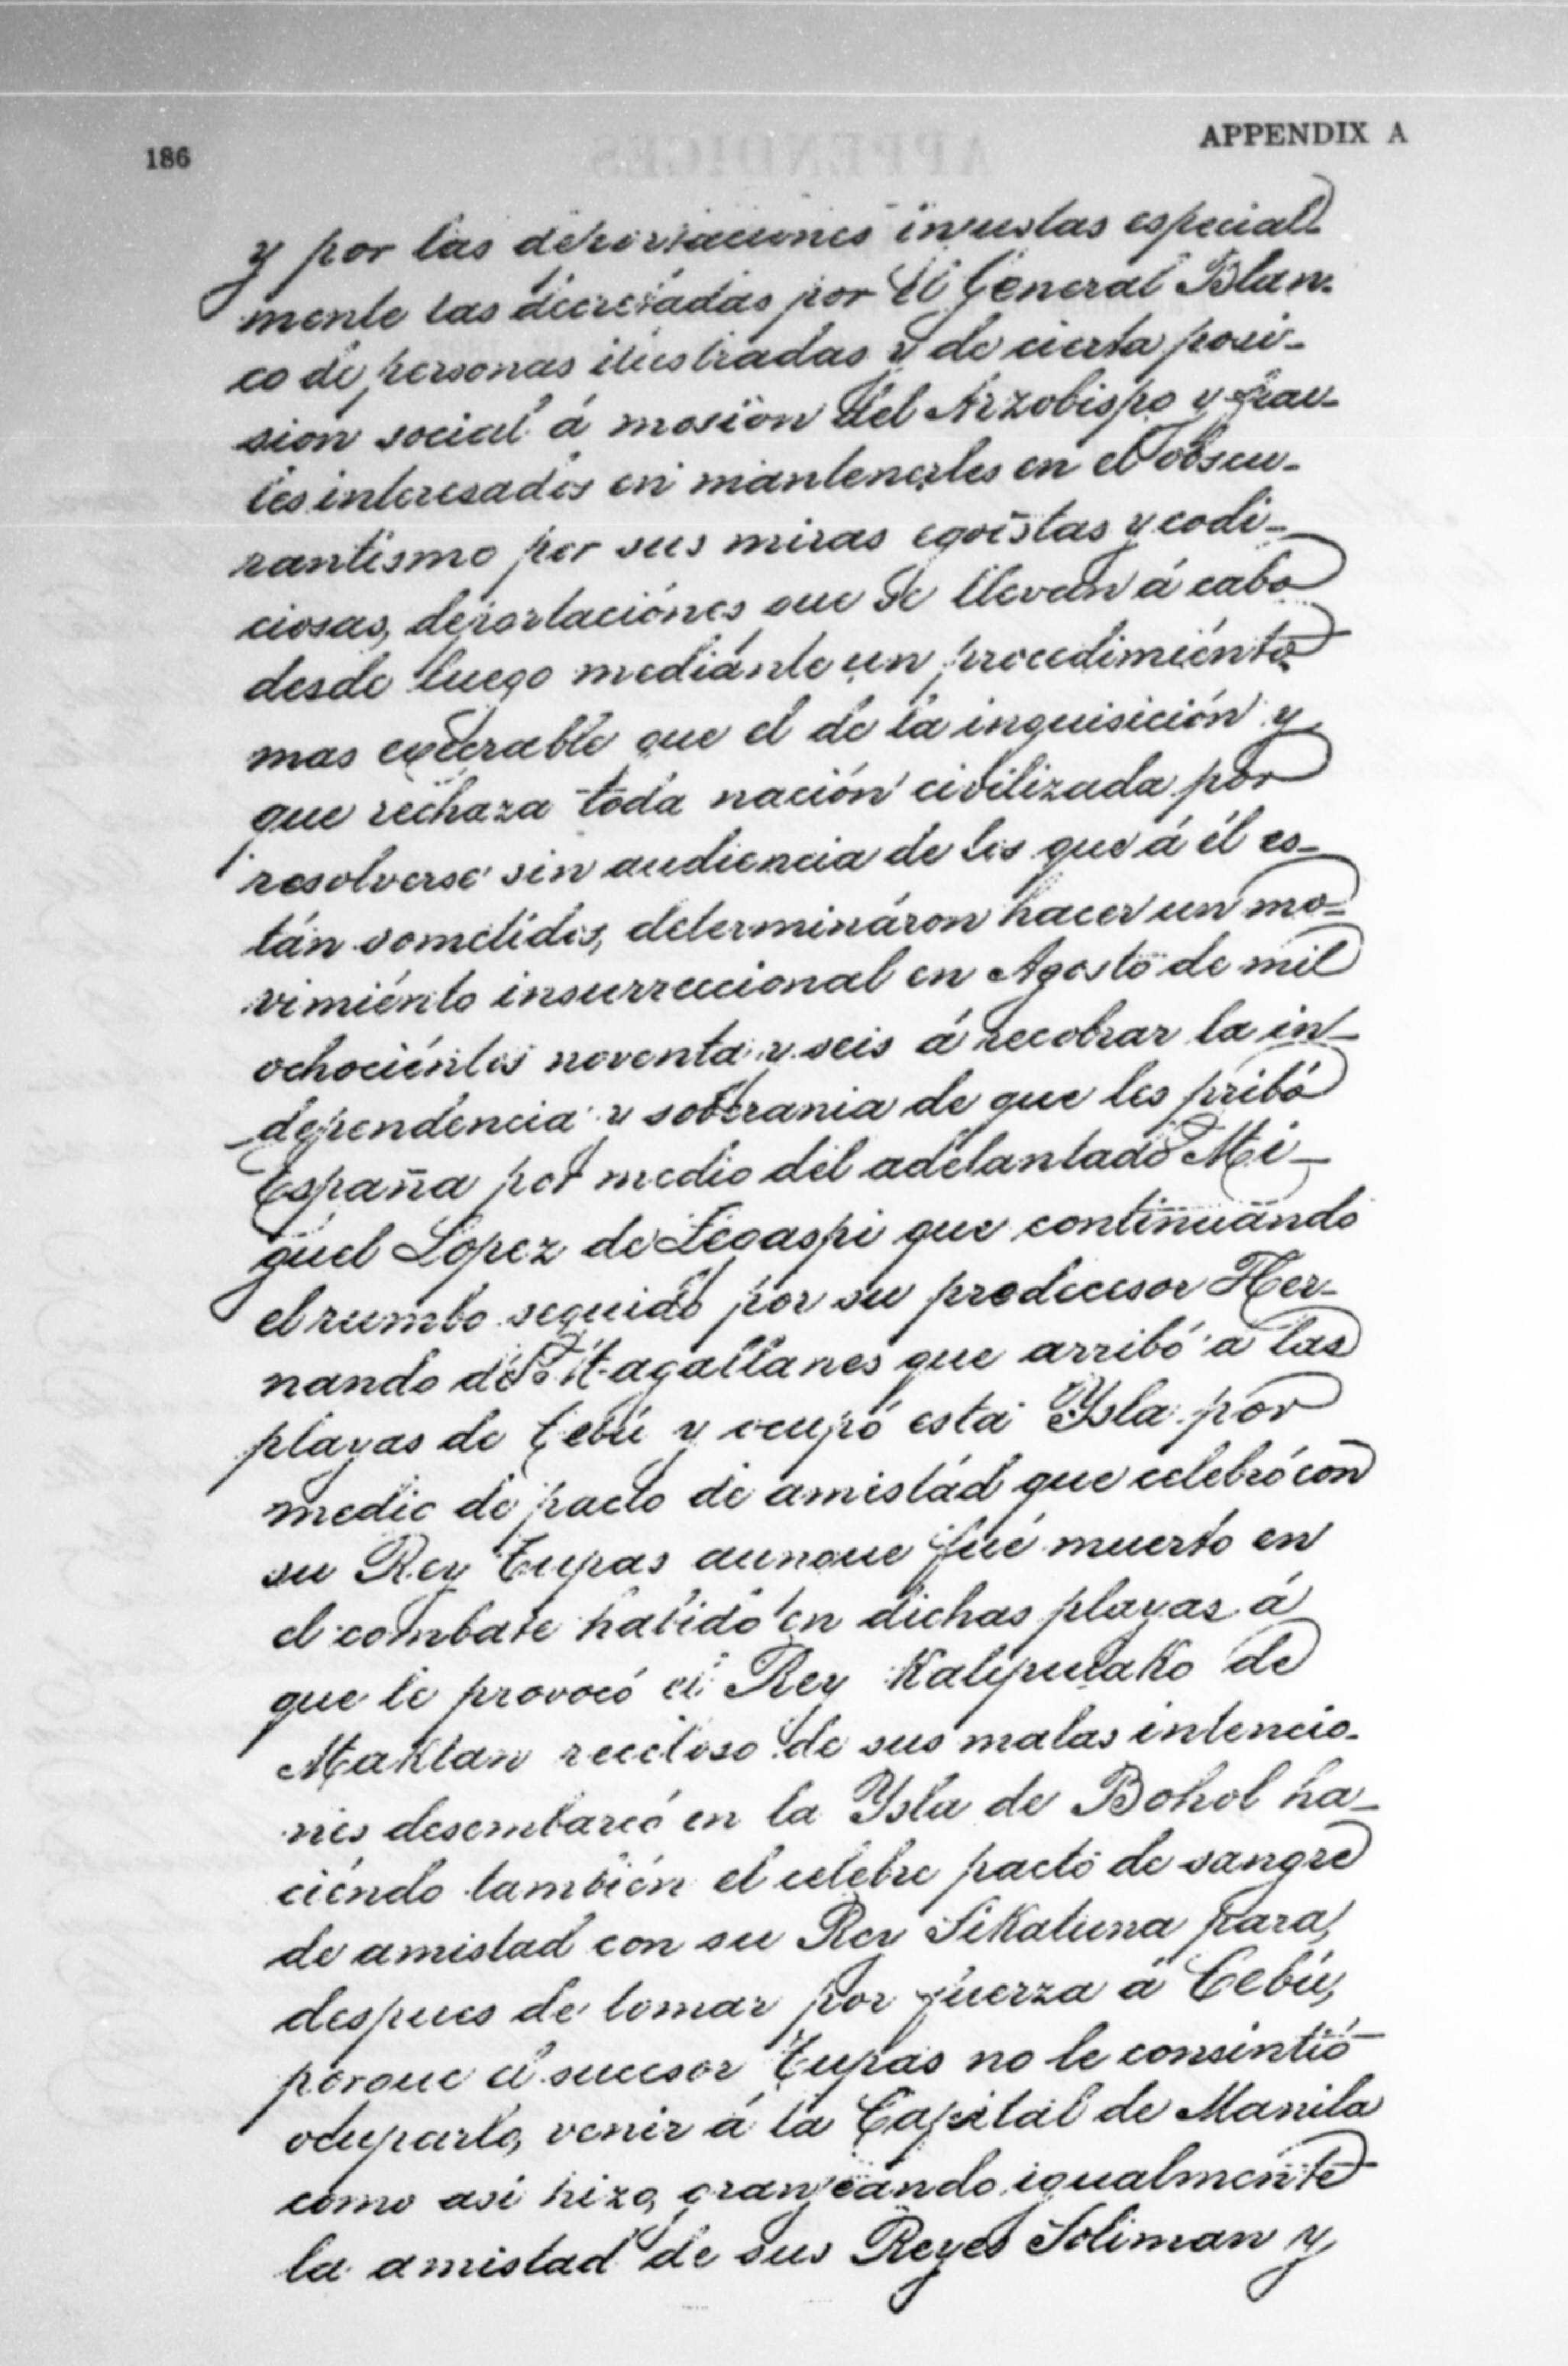 186
APPENDIX A
y por las deportaciones injustas especial-
mente las decretadas por el General Blan-
co de personas ilustradas y de cierta posi-
sion social á mosion del Arzobispo y frai-
les interesados en mantenerles en el obscu-
rantismo por sus miras egoistas y codi-
ciosas, deportaciónes que se llevan á cabo
desde luego mediánte un procedimiénto
mas execrable que el de la inquisición y
que rechaza toda nación civilizada por
resolverse sin audiencia de los que á él es-
tán sometidos, determináron hacer un mo-
vimiénto insurreccional en Agosto de mil
ochociéntos noventa y seis á recobrar la in-
dependencia y soberania de que les pribó
España por medio del adelantado Mi-
guel Lopez de Legaspi que continuándo
el rumbo seguido por su predecesor Her-
nando de Magallanes que arribó á las
playas de Cebú y ocupó esta Ysla por
medio de pacto de amistád que celebró con
su Rey Tupas aunque fué muerto en
el combate habido en dichas playas á
que le provocó el Rey Kalipulako de
Maktan receloso de sus malas intencio-
nes desembarcó en la Ysla de Bohol ha-
ciéndo también el celebre pacto de sangre
de amistad con su Rey Sikatuna para,
despues de tomar por fuerza á Cebú,
porque el sucesor Tupas no le consintió
ocuparlo, venir á la Capital de Manila
como asi hizo, grangeándo igualmente
la amistad de sus Reyes Soliman y